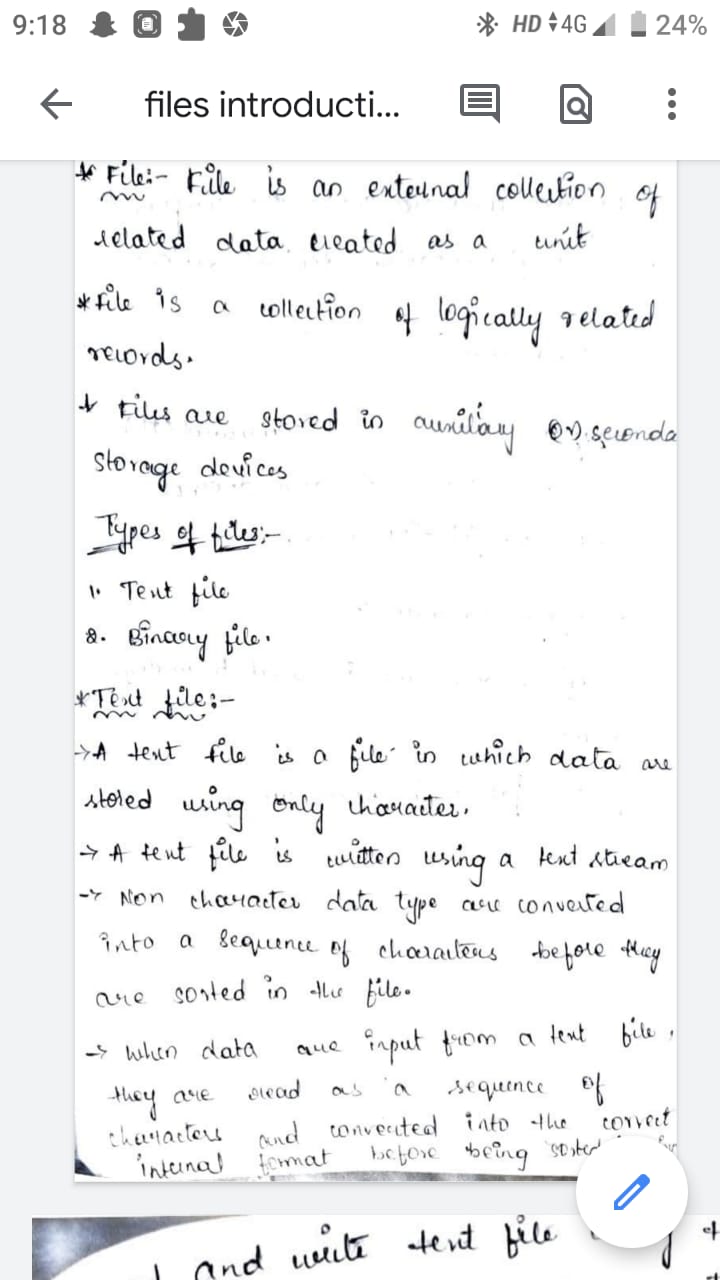 9:18 HD 4G 24%
files introducti...
* File:- File is an external collection of
related data created as a unit
* File is a collection of logically related
records.
* Files are stored in auxilary (or) seconda
storage devices
Types of files:-
1. Text file
2. Binary file.
* Text file:-
→ A text file is a file in which data are
stored using only character.
→ A text file is written using a text stream
→ Non character data type are converted
into a sequence of characters before they
are sorted in the file.
→ when data are input from a text file,
they are read as a sequence of
characters and converted into the correct
internal format before being sorted
and write text file